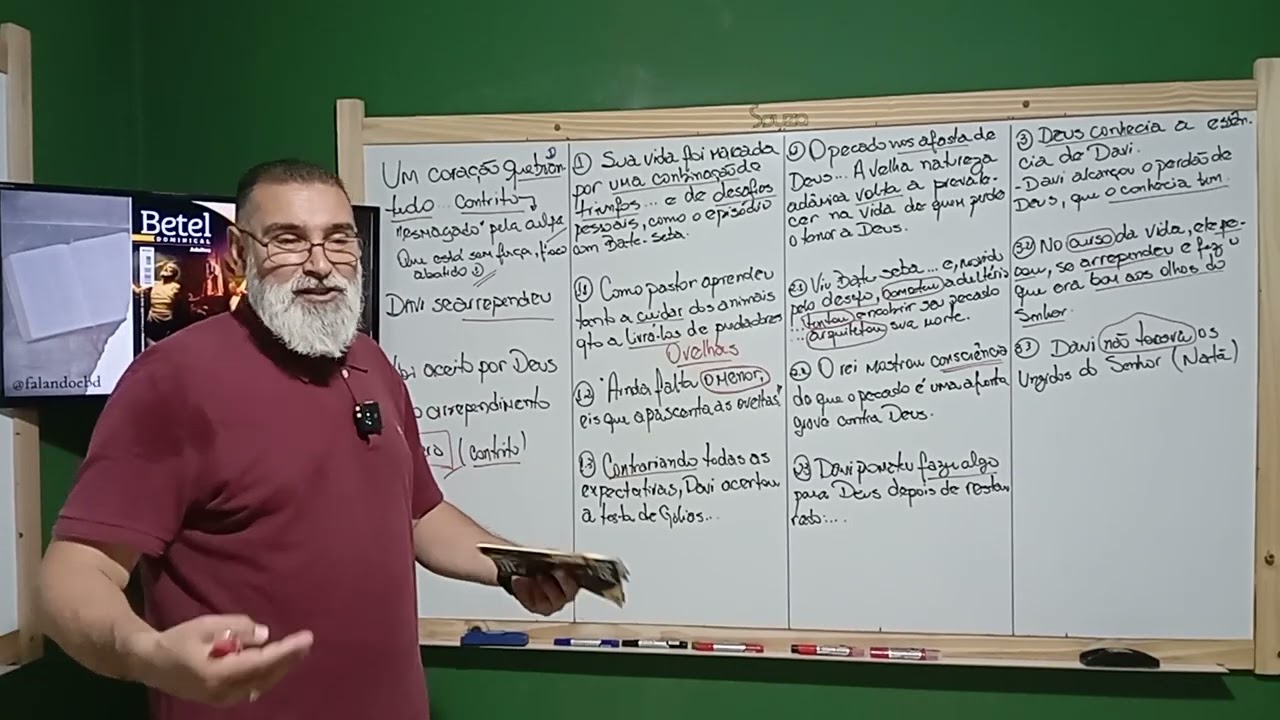 Souza
Betel
DOMINICAL
Adultos
@falandoebd
Um coração quebran-
tado... Contrito
"esmagado" pela culpa
Que está sem força, fraco
abatido
Davi se arrependeu
oi aceito por Deus
o arrependimento
ero (contrito)
① Sua vida foi marcada
por uma combinação de
triunfos... e de desafios
pessoais, como o episódio
com Bate-seba.
1.1 Como pastor aprendeu
tanto a cuidar dos animais
qto a livrá-los de predadores
Ovelhas
1.2 "Ainda falta o menor,
eis que apascenta as ovelhas"
1.3 Contrariando todas as
expectativas, Davi acertou
a testa de Golias...
② O pecado nos afasta de
Deus... A velha natureza
adâmica volta a prevale-
cer na vida de quem pede
o temor a Deus.
2.1 Viu Bate seba... e, movido
pelo desejo, cometeu adultério
... tentou encobrir seu pecado
... arquitetou sua morte.
2.2 O rei mostrou consciência
de que o pecado é uma afronta
grave contra Deus.
2.3 Davi promete fazer algo
para Deus depois de restau-
rado:...
③ Deus conhecia a essên-
cia de Davi.
- Davi alcançou o perdão de
Deus, que o conhecia bem.
3.2 No curso da vida, ele pe-
cou, se arrependeu e fez o
que era bom aos olhos do
Senhor.
3.3 Davi não tocava os
Ungidos do Senhor (Natã)